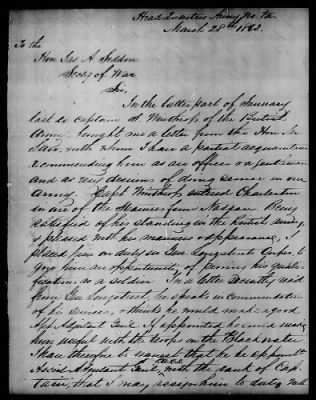 Head Quarters Army No. Va.
March 28th 1863.
To the
Hon. Jas A. Seddon
Secy of War
Sir,
In the latter part of January
last a captain S. Winthrop of the British
Army, brought me a letter from the Hon. Mr
with whom I have a partial acquaintance
recommending him as an officer &
and as very desirous of doing service in our
Army. Capt Winthrop entered Charleston
in one of the Steamers from Nassau. Being
satisfied of his standing in the British army,
& pleased with his manners & appearance, I
placed him on duty in Gen Longstreets Corps, to
give him an opportunity of proving his quali-
fications as a soldier. In a letter recently recd
from Gen Longstreet, he speaks in commendation
of his services, & thinks he would make a good
Asst Adjutant Genl. If appointed he could make
him useful with the troops on the Blackwater
I have therefore to request that he be appointed
Assist Adjutant Genl, with the rank of Cap-
tain, that I may assign him to duty with